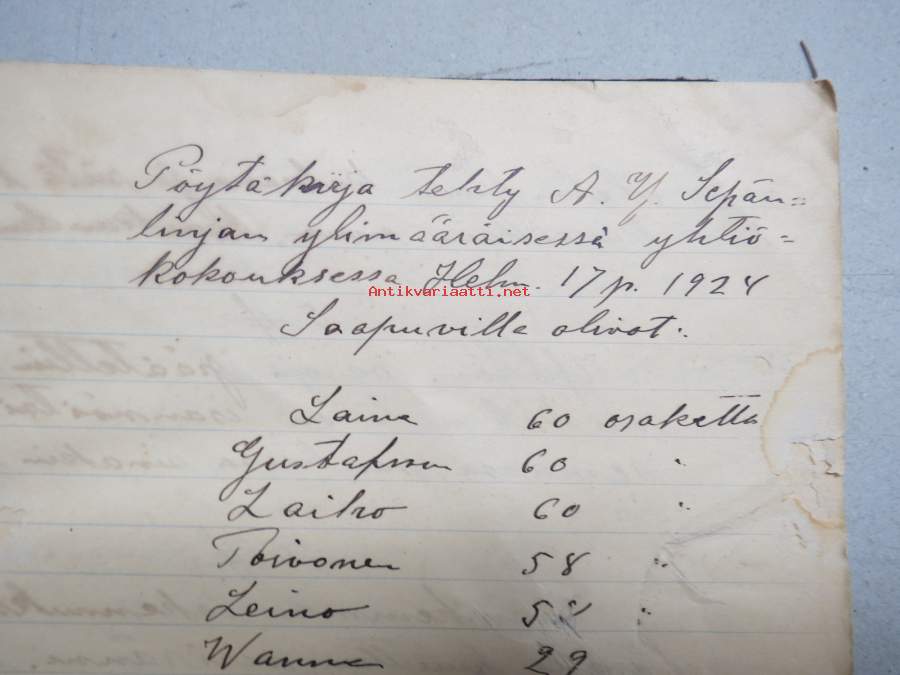 Pöytäkirja tehty A. Y. Sepän=
linjan ylimääräisessä yhtiö=
kokouksessa Helm. 17 p. 1924
Antikvariaatti.net
Saapuvilla olivat:
Laine 60 osaketta
Gustafsson 60 "
Laiho 60 "
Toivonen 58 "
Leino "
Wanne 29